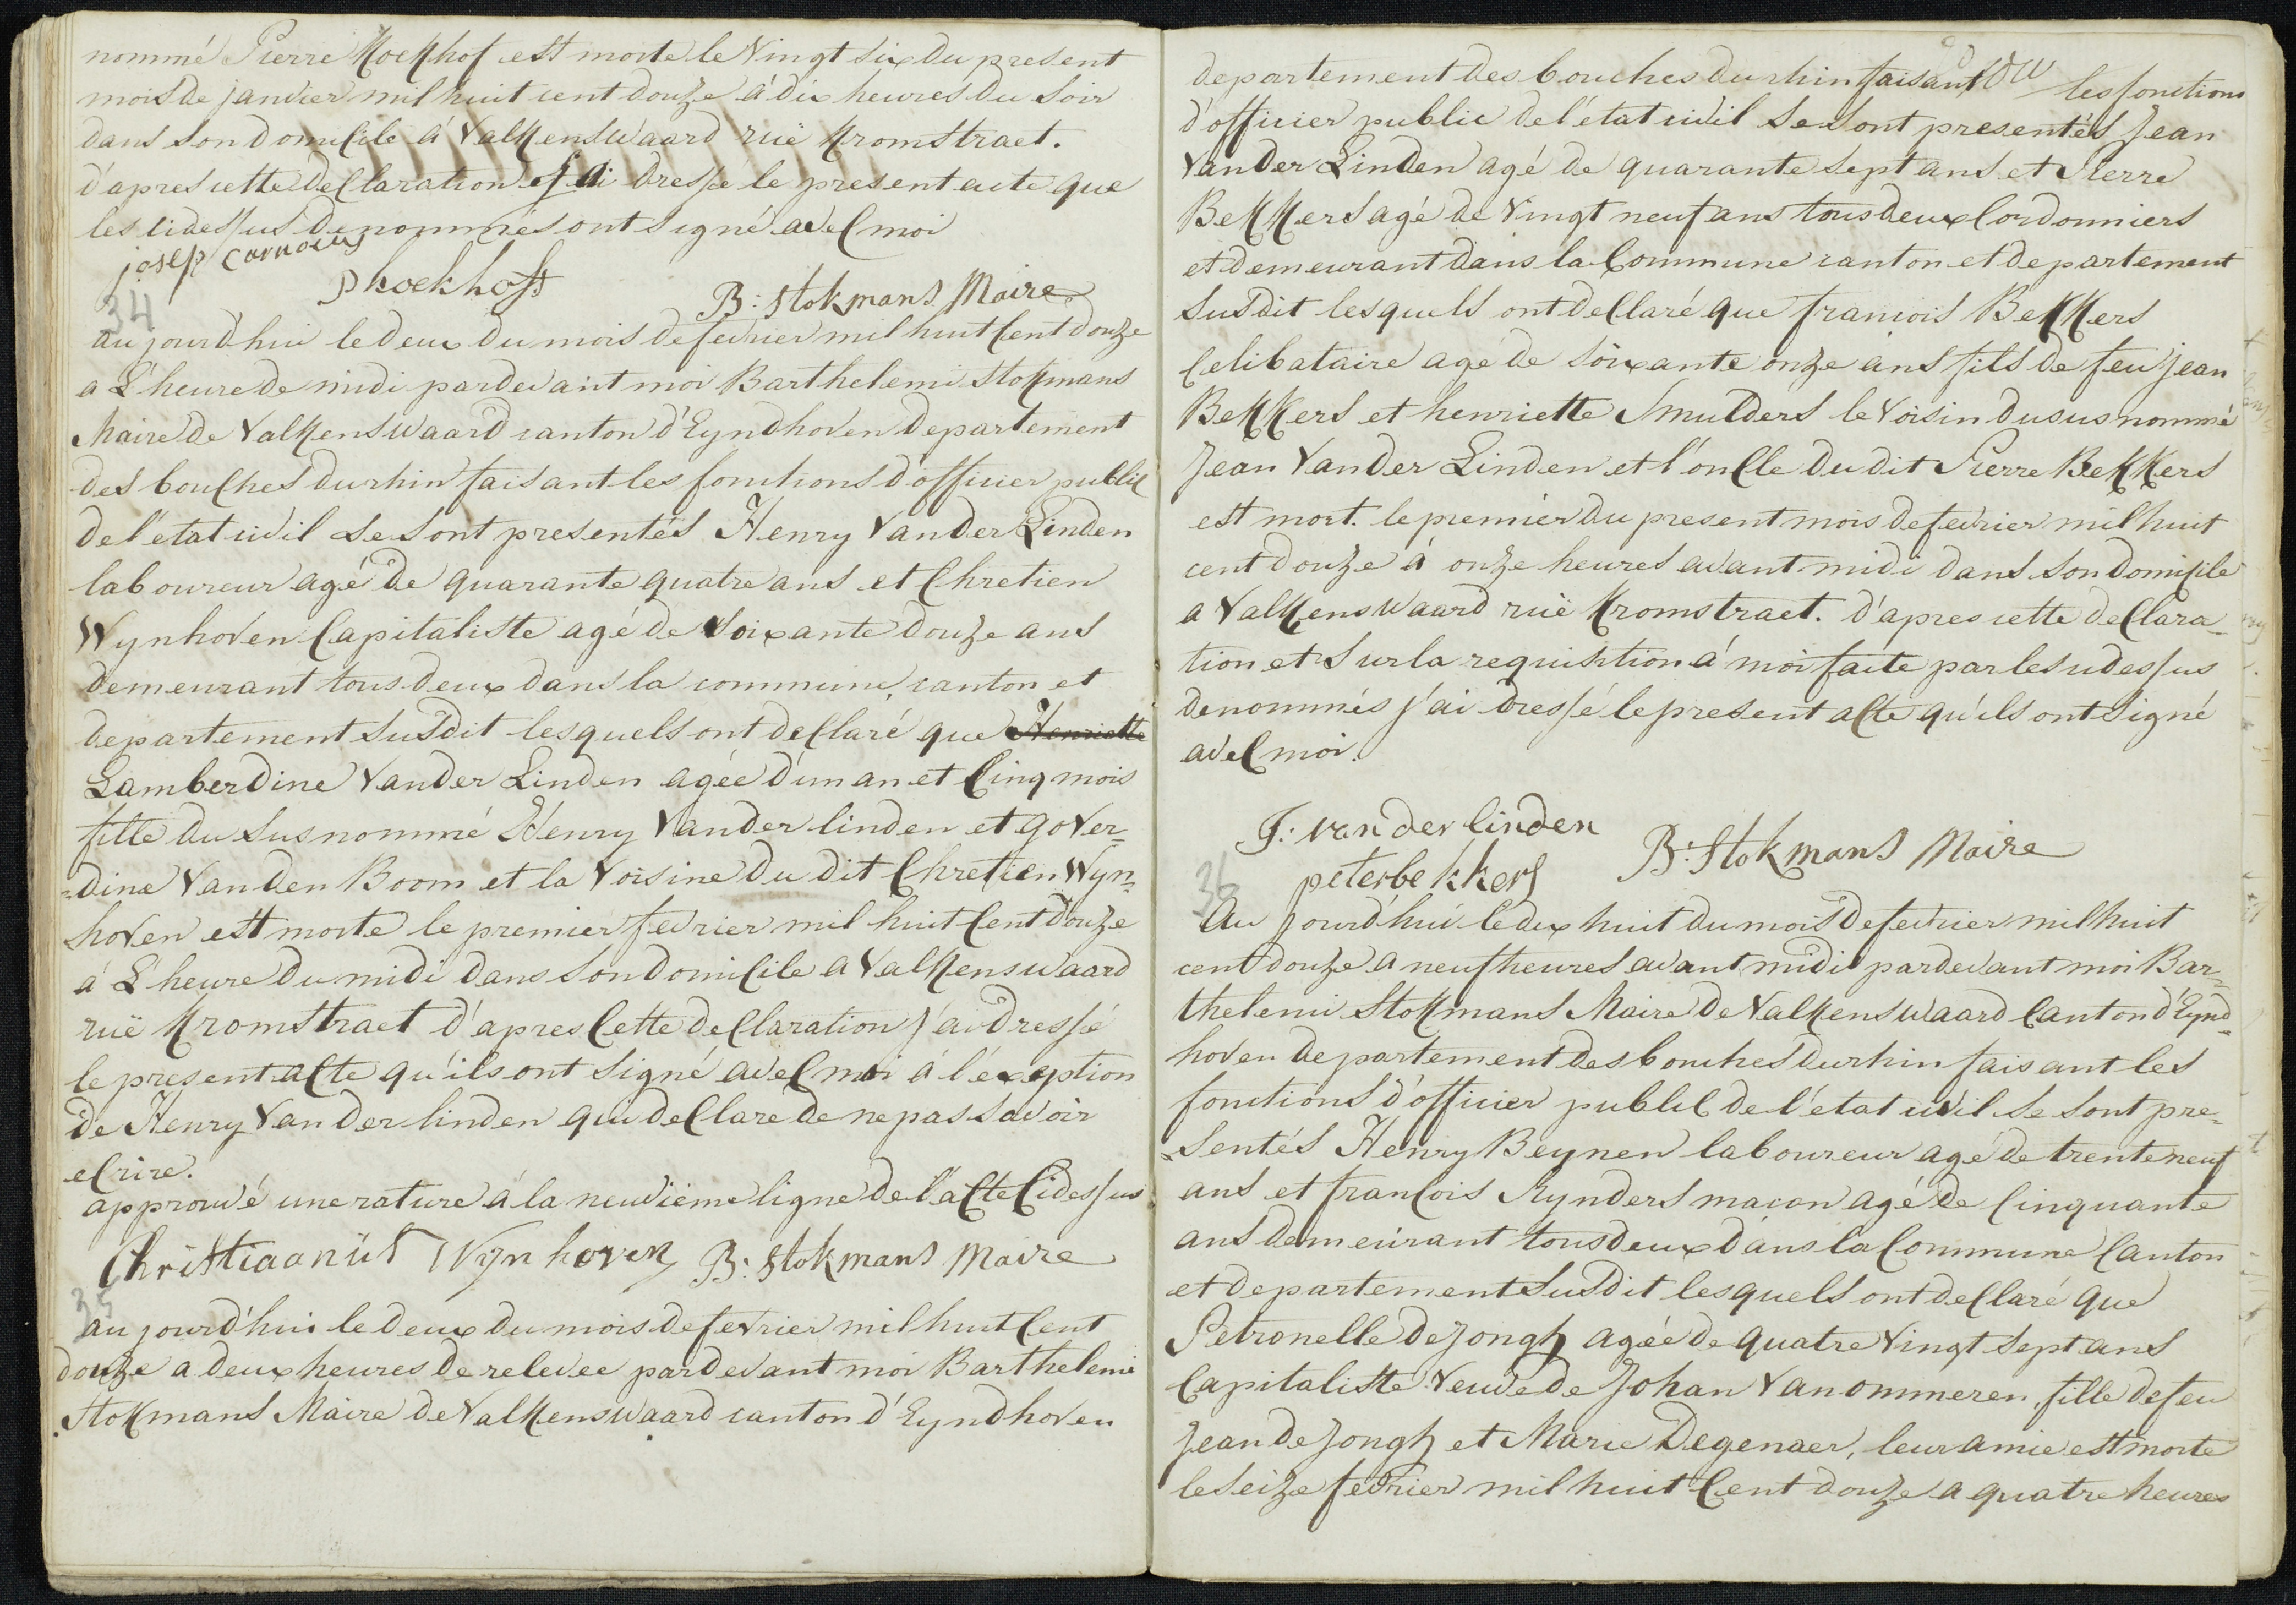 nommé Pierre Kockhof est morte le vingt six du present
mois de janvier mil huit cent douze à dix heures du soir
dans son domicile à Valkenswaard ruë Kromstraet.
d'apres cette declaration j'ai dressé le present acte que
les cidessus denommés ont signé avec moi
josep
P koekhoff
B: Stokmans Maire
34
au jourd'hui le deux du mois de fevrier mil huit cent douze
a L'heure de midi pardevant moi Barthelemi Stokmans
Maire de Valkenswaard canton d'Eyndhoven departement
des bouches du rhin faisant les fonctions d'officier public
de l'état civil se sont presentés Henry Van der Linden
laboureur agé de quarante quatre ans et Chretien
Wynhoven Capitaliste agé de soixante douze ans
demeurant tous deux dans la commune, canton et
departement susdit lesquels ont declaré que Henriette
Lamberdine Van der Linden agée d'un an et Cinq mois
fille du susnommé Henry Van der linden et gover-
dine Van den Boom et la Voisine du dit Chretien Wyn-
hoven est morte le premier fevrier mil huit Cent douze
à L'heure du midi dans son domicile a Valkenswaard
ruë Kromstraet d'apres Cette declaration j'ai dressé
le present acte qu'ils ont signé avec moi à l'exeption
de Henry Van der linden qui declare de ne pas savoir
ecrire.
approuvé une rature á la neuvième ligne de l'acte Cidessus
Christiaanus Wijnhoven B: Stokmans Maire
35
au jourd'hui le deux du mois de fevrier mil huit Cent
douze a deux heures de relevee pardevant moi Barthelemi
Stokmans Maire de Valkenswaard canton d'Eyndhoven
departement des bouches du rhin faisant les fonctions
d'officier public de l'état civil se sont presentés Jean
Van der Linden agé de quarante sept ans et Pierre
Bekkers agé de vingt neuf ans tous deux Cordonniers
et demeurant dans la Commune canton et departement
susdit lesquels ont declaré que francois Bekkers
Celibataire agé de soixante onze ans fils de feu jean
Bekkers et henriette Smulders le voisin du susnommé
Jean Van der Linden et l'oncle du dit Pierre Bekkers
est mort. le premier du present mois de fevrier mil huit
cent douze à onze heures avant midi dans son domicile
a Valkenswaard ruë Kromstraet. d'apres cette declara-
tion et sur la requisition à moi faite par les cidessus
denommés j'ai dressé le present acte qu'ils ont signé
avec moi.
J: van der linden
peterbekkers
B: Stokmans Maire
36
Au jourd'hui le dix huit du mois de fevrier mil huit
cent douze a neuf heures avant midi pardevant moi Bar-
thelemi Stokmans Maire de Valkenswaard Canton d'Eynd-
hoven departement des bouches du rhin faisant les
fonctions d'officier public de l'état civil se sont pre-
sentés Henry Beynen laboureur agé de trente neuf
ans et francois Rynders macon agé de Cinquante
ans demeurant tous deux dans la Commune Canton
et departement susdit lesquels ont declaré que
Petronelle de jongh agée de quatre Vingt sept ans
Capitaliste Veuve de Johan Van ommeren, fille de feu
Jean de jongh et Marie Degenaer, leur amie est morte
le seize fevrier mil huit Cent douze a quatre heures